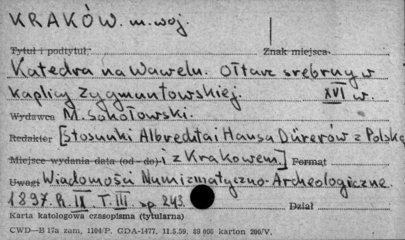 KRAKÓW. m. woj.
Tytuł i podtytuł: Znak miejsca
Katedra na Wawelu. Ołtarz srebrny w
kaplicy Zygmuntowskiej. XVI w.
Wydawca M. Sokołowski.
Redaktor [Stosunki Albrechta i Hansa Dürerów z Polską
Miejsce wydania data (od - do) i z Krakowem.] Format
Uwagi Wiadomości Numizmatyczno-Archeologiczne.
1897. R. II T. III sp. 243. Dział
Karta katologowa czasopisma (tytularna)
CWD—B 17a zam, 1104/P. GDA-1477. 11.5.59. karton 200/V.